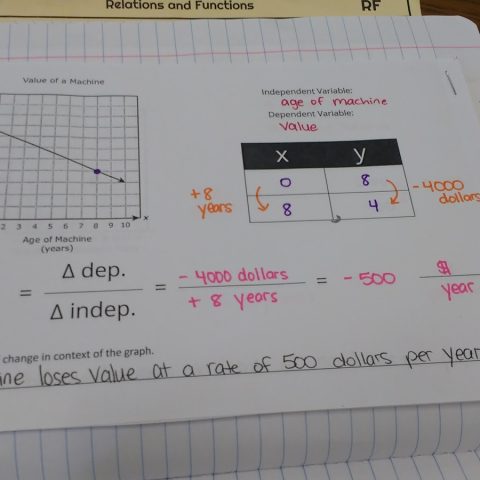 Relations and Functions
RF
Value of a Machine
2 3 4 5 6 7 8 9 10 x
Age of Machine
(years)
Independent Variable:
age of machine
Dependent Variable:
value
x y
0 8
8 4
+8
years
-4000
dollars
= Δ dep. / Δ indep. = - 4000 dollars / + 8 years = - 500 $ / year
change in context of the graph.
ine loses value at a rate of 500 dollars per year